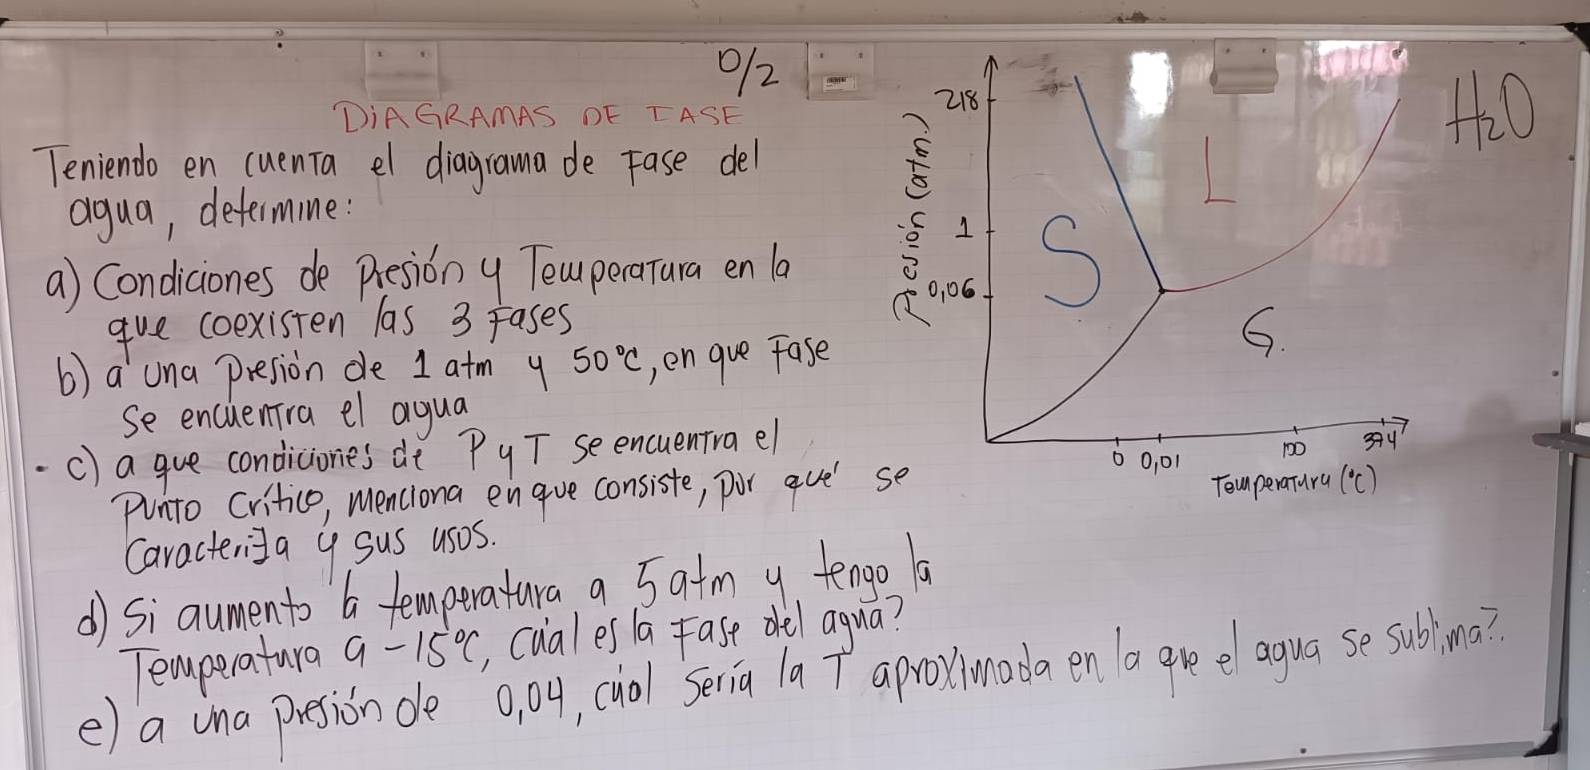 0/2
DIAGRAMAS DE FASE
Teniendo en cuenta el diagrama de Fase del
agua, determine:
a) Condiciones de Presión y Temperatura en la
que coexisten las 3 Fases
b) a una Presión de 1 atm y 50°C, en que Fase
se encuentra el agua
c) a que condiciones de P y T se encuentra el
Punto Crítico, menciona en que consiste, por qué se
Caracteriza y sus usos.
d) Si aumento la temperatura a 5 atm y tengo la
Temperatura a -15°C, cuál es la Fase del agua?
e) a una Presión de 0,04, cuál sería la T aproximada en la que el agua se sublima?.
H₂O
Presión (atm.)
218
1
0,06
S
L
G.
0 0,01 100 374
Temperatura (°C)